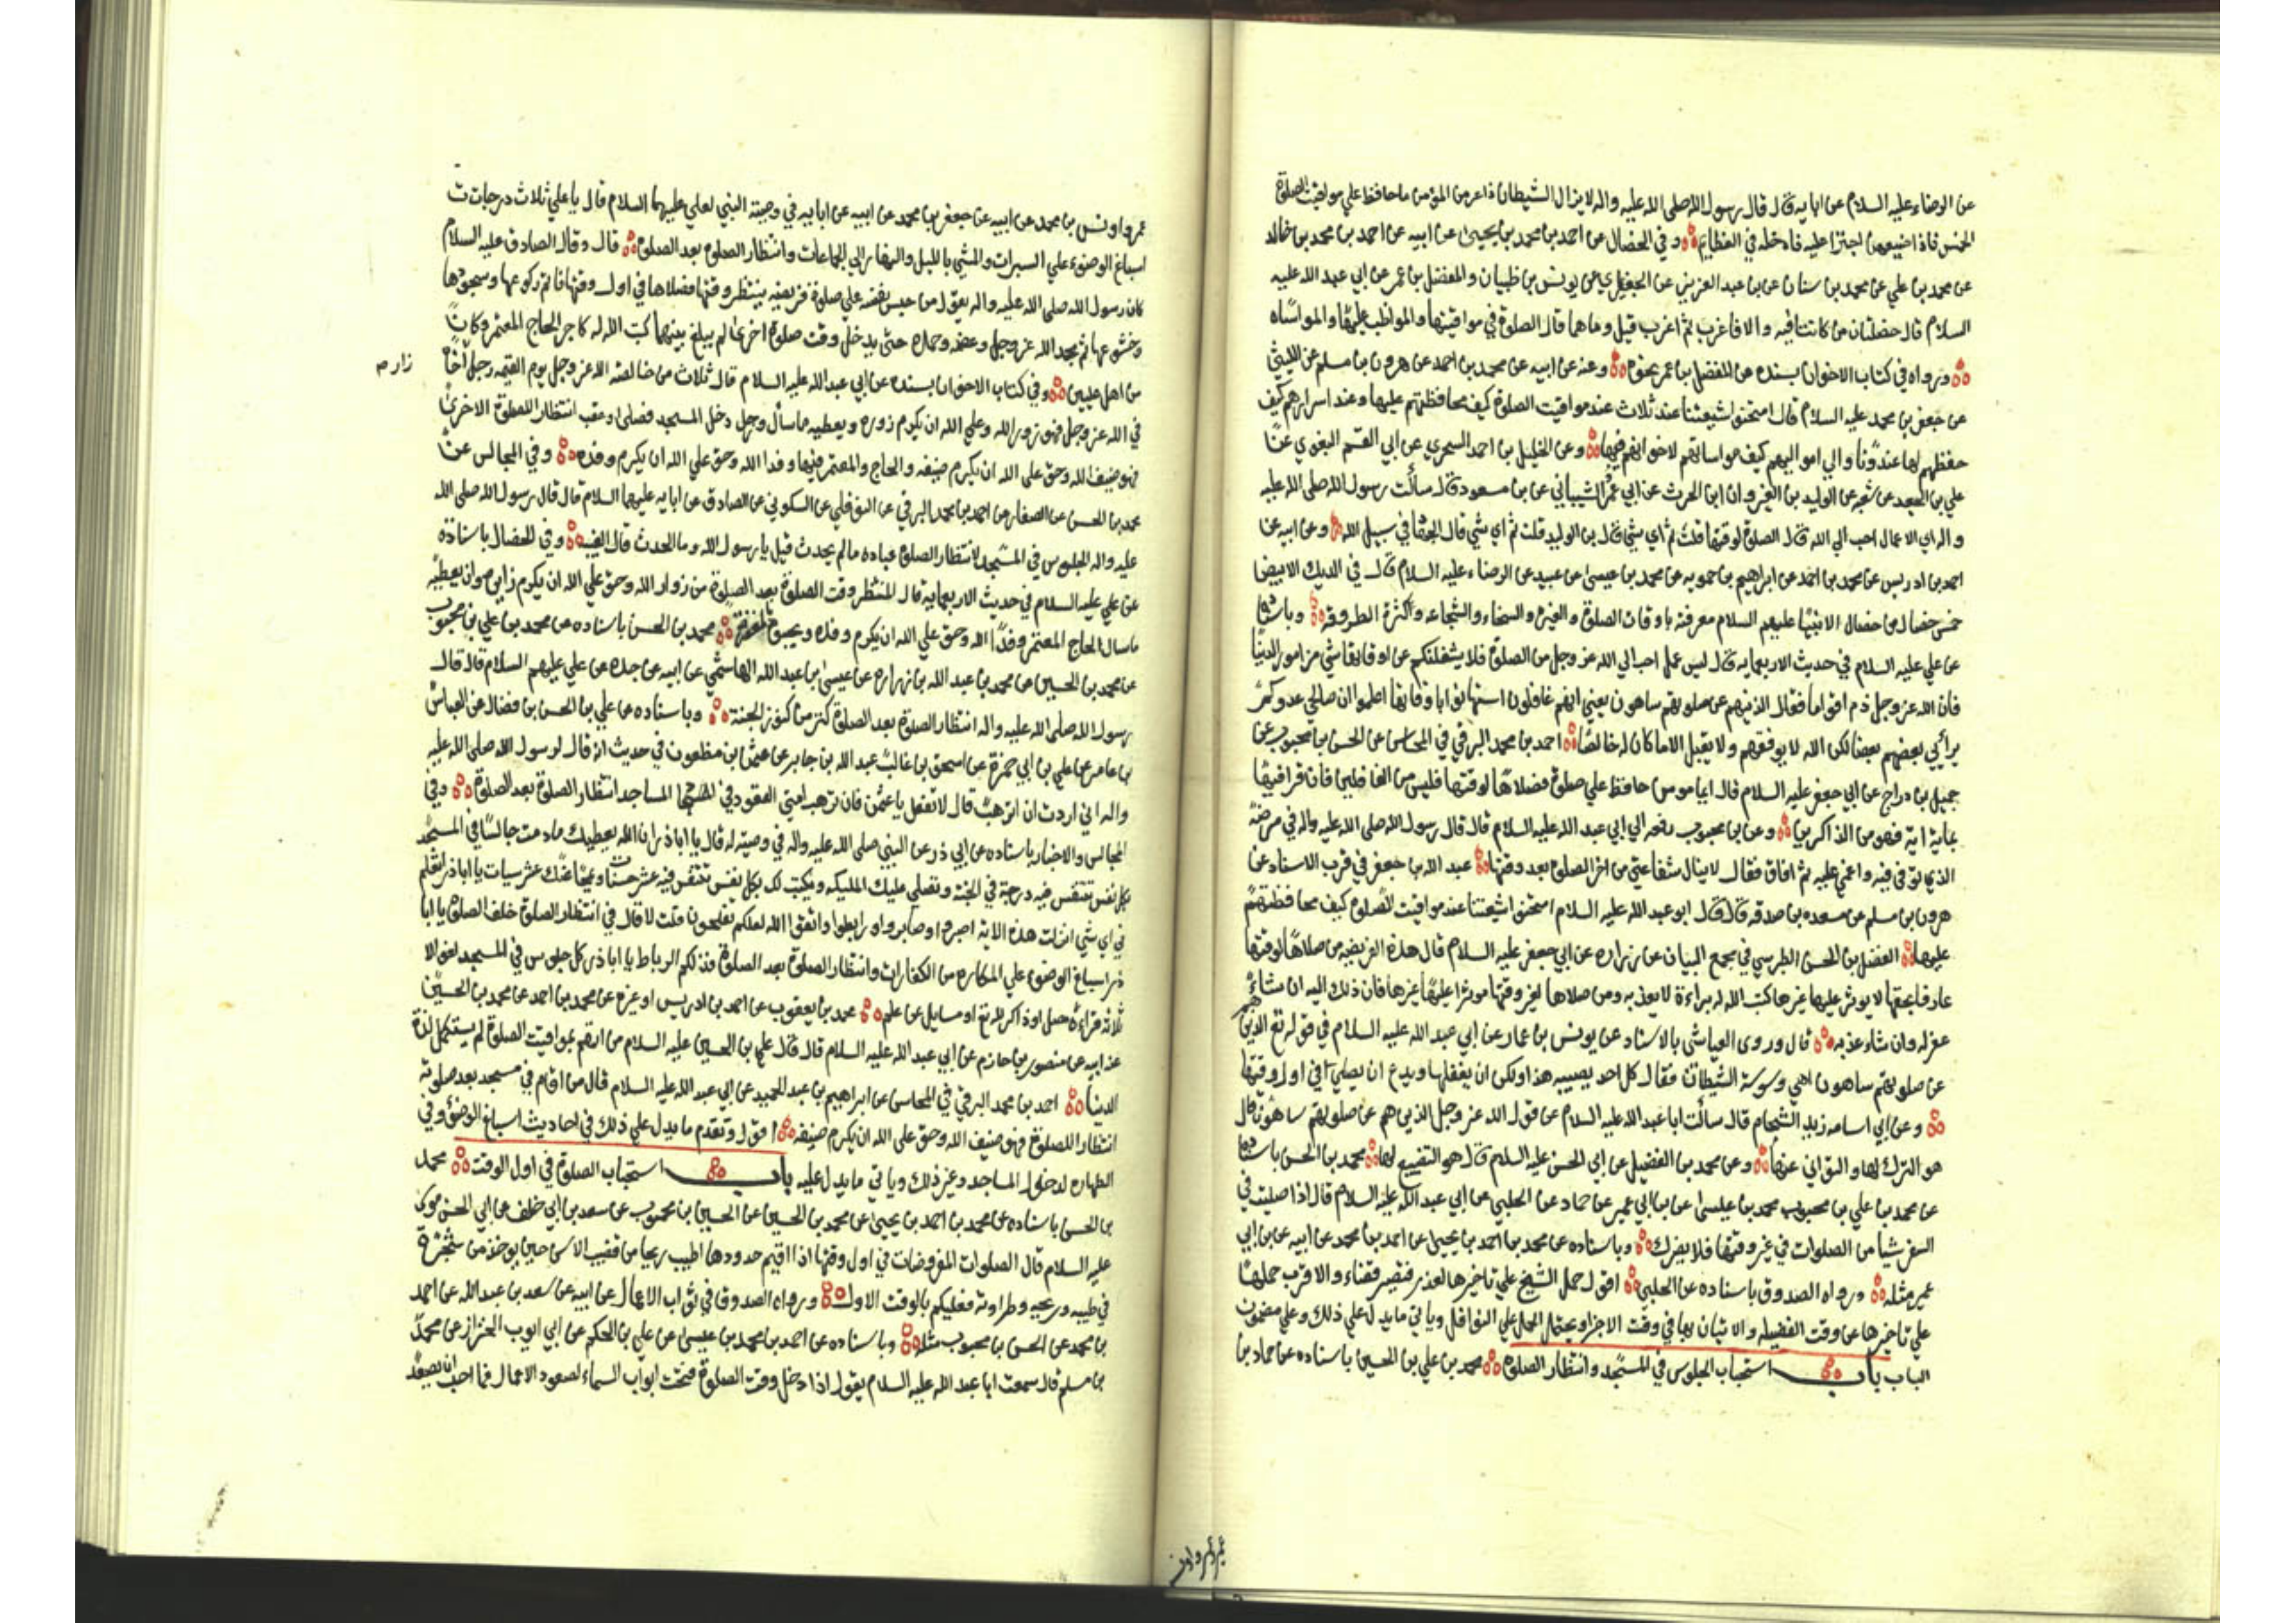 عن الرضاء عليه السلام عن ابايه قال قال رسول الله صلى الله عليه واله لايزال الشيطان ذاعر من المؤمن ماحافظ علي مواقيت الصلوة
الخمس فاذا ضيعهن اجترا عليه فادخله في العظايم وفي الخصال عن احمد بن محمد بن يحيى عن ابيه عن احمد بن محمد بن خالد
عن محمد بن علي عن محمد بن سنان عن بن عبد العزيز عن الجعفري عن يونس بن ظبيان والمفضل بن عمر عن ابي عبد الله عليه
السلام قال خصلتان من كانتافيه والا فاعزب ثم اعزب قيل وماهما قال الصلوة في مواقيتها والمواظب عليها والمواساه
ورواه في كتاب الاخوان بسنده عن المفضل بن عمر نحوه وعنه عن ابيه عن محمد بن احمد عن هرون بن مسلم عن الليثي
عن جعفر بن محمد عليه السلام قال امتحنوا شيعتنا عند ثلاث عند مواقيت الصلوة كيف محافظتهم عليها وعند اسرارهم كيف
حفظهم لها عند عدونا والي اموالهم كيف مواساتهم لاخوانهم فيها وعن الخليل بن احمد السجزي عن ابي القسم البغوي عن
علي بن الجعد عن شعبه عن الوليد بن العيزوان ابن الحرث عن ابي عمر الشيباني عن بن مسعود قال سألت رسول الله صلى الله عليه
واله اي الاعمال احب الي الله قال الصلوة لوقتها قلت ثم اي شي قال بر الوالدين قلت ثم اي شي قال الجهاد في سبيل الله وعن ابيه عن
احمد بن ادريس عن محمد بن احمد عن ابراهيم بن حمويه عن محمد بن عيسى عن عبيد عن الرضاء عليه السلام قال في الديك الابيض
خمس خصال من خصال الانبيا عليهم السلام معرفته باوقات الصلوة والغيرة والسخاء والشجاعه وكثرة الطروقه وباسناده
عن علي عليه السلام في حديث الاربعمايه قال ليس عمل احب الي الله عز وجل من الصلوة فلا يشغلنكم عن اوقاتها شي من امور الدنيا
فان الله عز وجل ذم اقواما فقال الذينهم عن صلوتهم ساهون يعني انهم غافلون استهانوا باوقاتها اعلموا ان صالحي عدوكم
يرائي بعضهم بعضا لكن الله لا يوفقهم ولا يقبل الا ماكان له خالصا احمد بن محمد البرقي في المحاسن عن الحسن بن محبوب عن
جميل بن دراج عن ابي جعفر عليه السلام قال ايما مومن حافظ علي صلوة فصلاها لوقتها فليس من الغافلين فان قرا فيها
بماية اية فهو من الذاكرين وعن بن محبوب رفعه الي ابي عبد الله عليه السلام قال قال رسول الله صلى الله عليه واله في مرضه
الذي توفي فيه واغمي عليه ثم افاق فقال لاينال شفاعتي من اخر الصلوة بعد وقتها عبد الله بن جعفر في قرب الاسناد عن
هرون بن مسلم عن مسعده بن صدقه قال قال ابو عبد الله عليه السلام امتحنوا شيعتنا عند مواقيت الصلوة كيف محافظتهم
عليها الفضل بن الحسن الطبرسي في مجمع البيان عن زراره عن ابي جعفر عليه السلام قال هذه الفريضه من صلاها لوقتها
عارفا بحقها لا يوثر عليها غيرها كتب الله له براءة لا يعذبه ومن صلاها لغير وقتها موثرا عليها غيرها فان ذلك اليه ان شاء
غفر له وان شاء عذبه قال وروى العياشي بالاسناد عن يونس بن عمار عن ابي عبد الله عليه السلام في قوله تع الذين هم
عن صلوتهم ساهون اهي وسوسة الشيطان فقال كل احد يصيبه هذا ولكن ان يغفلها ويدع ان يصلي في اول وقتها
وعن ابي اسامه زيد الشحام قال سألت ابا عبد الله عليه السلام عن قول الله عز وجل الذين هم عن صلوتهم ساهون قال
هو الترك لها والتواني عنها وعن محمد بن الفضيل عن ابي الحسن عليه السلام قال هو التضييع لها محمد بن الحسن باسناده
عن محمد بن علي بن محبوب محمد بن عيسى عن بن ابي عمير عن حماد عن الحلبي عن ابي عبد الله عليه السلام قال اذا صليت في
السفر شيا من الصلوات في غير وقتها فلا يضرك وباسناده عن محمد بن احمد بن يحيى عن احمد بن محمد عن ابيه عن بن ابي
عمير مثله ورواه الصدوق باسناده عن الحلبي اقول حمل الشيخ علي تاخيرها لعذر فتصير قضاء والاقرب حملها
علي تاخيرها عن وقت الفضيله والاتيان بها في وقت الاجزا ويحتمل الحمل علي النوافل وياتي مايدل علي ذلك وعلي مضمون
الباب باب استحباب الجلوس في المسجد وانتظار الصلوة محمد بن علي بن الحسين باسناده عن حماد بن
عمرو وانس
عمرو وانس بن محمد عن ابيه عن جعفر بن محمد عن ابيه عن ابايه في وصية النبي لعلي عليهما السلام قال ياعلي ثلاث درجات
اسباغ الوضوء علي السبرات والمشي بالليل والنهار الي الجماعات وانتظار الصلوة بعد الصلوة قال وقال الصادق عليه السلام
كان رسول الله صلى الله عليه واله يقول من حبس نفسه علي صلوة فريضه ينتظر وقتها فصلاها في اول وقتها فاتم ركوعها وسجودها
وخشوعها ثم مجد الله عز وجل وعظمه وحمده حتى يدخل وقت صلوة اخرى لم يبلغ بينهما كتب الله له كاجر الحاج المعتمر وكان
من اهل عليين وفي كتاب الاخوان بسنده عن ابي عبد الله عليه السلام قال ثلاث من خالصه الله عز وجل يوم القيمه رجل اخا
زار ص
في الله عز وجل فهو زور الله وعلي الله ان يكرم زوره ويعطيه ماسأل ورجل دخل المسجد فصلى وعقب انتظار للصلوة الاخرى
فهو ضيف الله وحق على الله ان يكرم ضيفه والحاج والمعتمر فهما وفد الله وحق علي الله ان يكرم وفده وفي المجالس عن
محمد بن الحسن عن الصفار عن احمد بن محمد البرقي عن النوفلي عن السكوني عن الصادق عن ابايه عليهما السلام قال قال رسول الله صلى الله
عليه واله الجلوس في المسجد لانتظار الصلوة عباده مالم يحدث قيل يارسول الله وما الحدث قال الغيبه وفي الخصال باسناده
عن علي عليه السلام في حديث الاربعمايه قال المنتظر وقت الصلوة بعد الصلوة من زوار الله وحق علي الله ان يكرم زايره وان يعطيه
ماسال الحاج المعتمر وفد الله وحق علي الله ان يكرم وفده ويحبوه بالمغفرة محمد بن الحسن باسناده عن محمد بن علي بن محبوب
عن محمد بن الحسين عن محمد بن عبد الله بن زراره عن عيسى بن عبد الله الهاشمي عن ابيه عن جده عن علي عليهم السلام قال قال
رسول الله صلى الله عليه واله انتظار الصلوة بعد الصلوة كنز من كنوز الجنة وباسناده عن علي بن الحسن بن فضال عن العباس
بن عامر عن علي بن ابي حمزة عن اسحق بن غالب عبد الله بن جابر عن عثمن بن مظعون في حديث انه قال لرسول الله صلى الله عليه
واله اني اردت ان اترهب قال لا تفعل ياعثمن فان ترهب امتي القعود في المساجد انتظار الصلوة بعد الصلوة وفي
المجالس والاخبار باسناده عن ابي ذر عن النبي صلى الله عليه واله في وصيته له قال يا اباذر ان الله يعطيك مادمت جالسا في المسجد
بكل نفس تتنفس فيه درجة في الجنة وتصلي عليك المليكه ويكتب لك بكل نفس تتنفس فيه عشر حسنات ويمحا عنك عشر سيات يا اباذر اتعلم
في اي شي انزلت هذه الاية اصبروا وصابروا ورابطوا واتقوا الله لعلكم تفلحون قلت لا قال في انتظار الصلوة خلف الصلوة يا ابا
ذر اسباغ الوضوء علي المكاره من الكفارات وانتظار الصلوة بعد الصلوة فذلكم الرباط يا اباذر كل جلوس في المسجد لغو الا
ثلاثه قراءة مصل او ذاكر لله تع او سايل عن علم محمد بن يعقوب عن احمد بن ادريس او غيره عن محمد بن احمد عن محمد بن الحسين
عن ابيه عن منصور بن حازم عن ابي عبد الله عليه السلام قال قال علي بن الحسين عليه السلام من اهتم بمواقيت الصلوة لم يستكمل لذة
الدنيا احمد بن محمد البرقي في المحاسن عن ابراهيم بن عبد الحميد عن ابي عبد الله عليه السلام قال من اقام في مسجد بعد صلوته
انتظارا للصلوة فهو ضيف الله وحق على الله ان يكرم ضيفه اقول وتقدم مايدل علي ذلك في احاديث اسباغ الوضوء وفي
الطهاره لدخول المساجد وغير ذلك وياتي مايدل عليه باب استحباب الصلوة في اول الوقت محمد
بن الحسن باسناده عن محمد بن احمد بن يحيى عن محمد بن الحسين عن الحسين بن محبوب عن سعد بن ابي خلف عن ابي الحسن موسى
عليه السلام قال الصلوات المفروضات في اول وقتها اذا اقيم حدودها اطيب ريحا من قضيب الاس حين يوخذ من شجره
في طيبه وريحه وطراوته فعليكم بالوقت الاول ورواه الصدوق في ثواب الاعمال عن ابيه عن سعد بن عبد الله عن احمد
بن محمد عن الحسن بن محبوب مثله وباسناده عن احمد بن محمد بن عيسى عن علي بن الحكم عن ابي ايوب الخزاز عن محمد
بن مسلم قال سمعت ابا عبد الله عليه السلام يقول اذا دخل وقت الصلوة فتحت ابواب السماء لصعود الاعمال فما احب ان يصعد